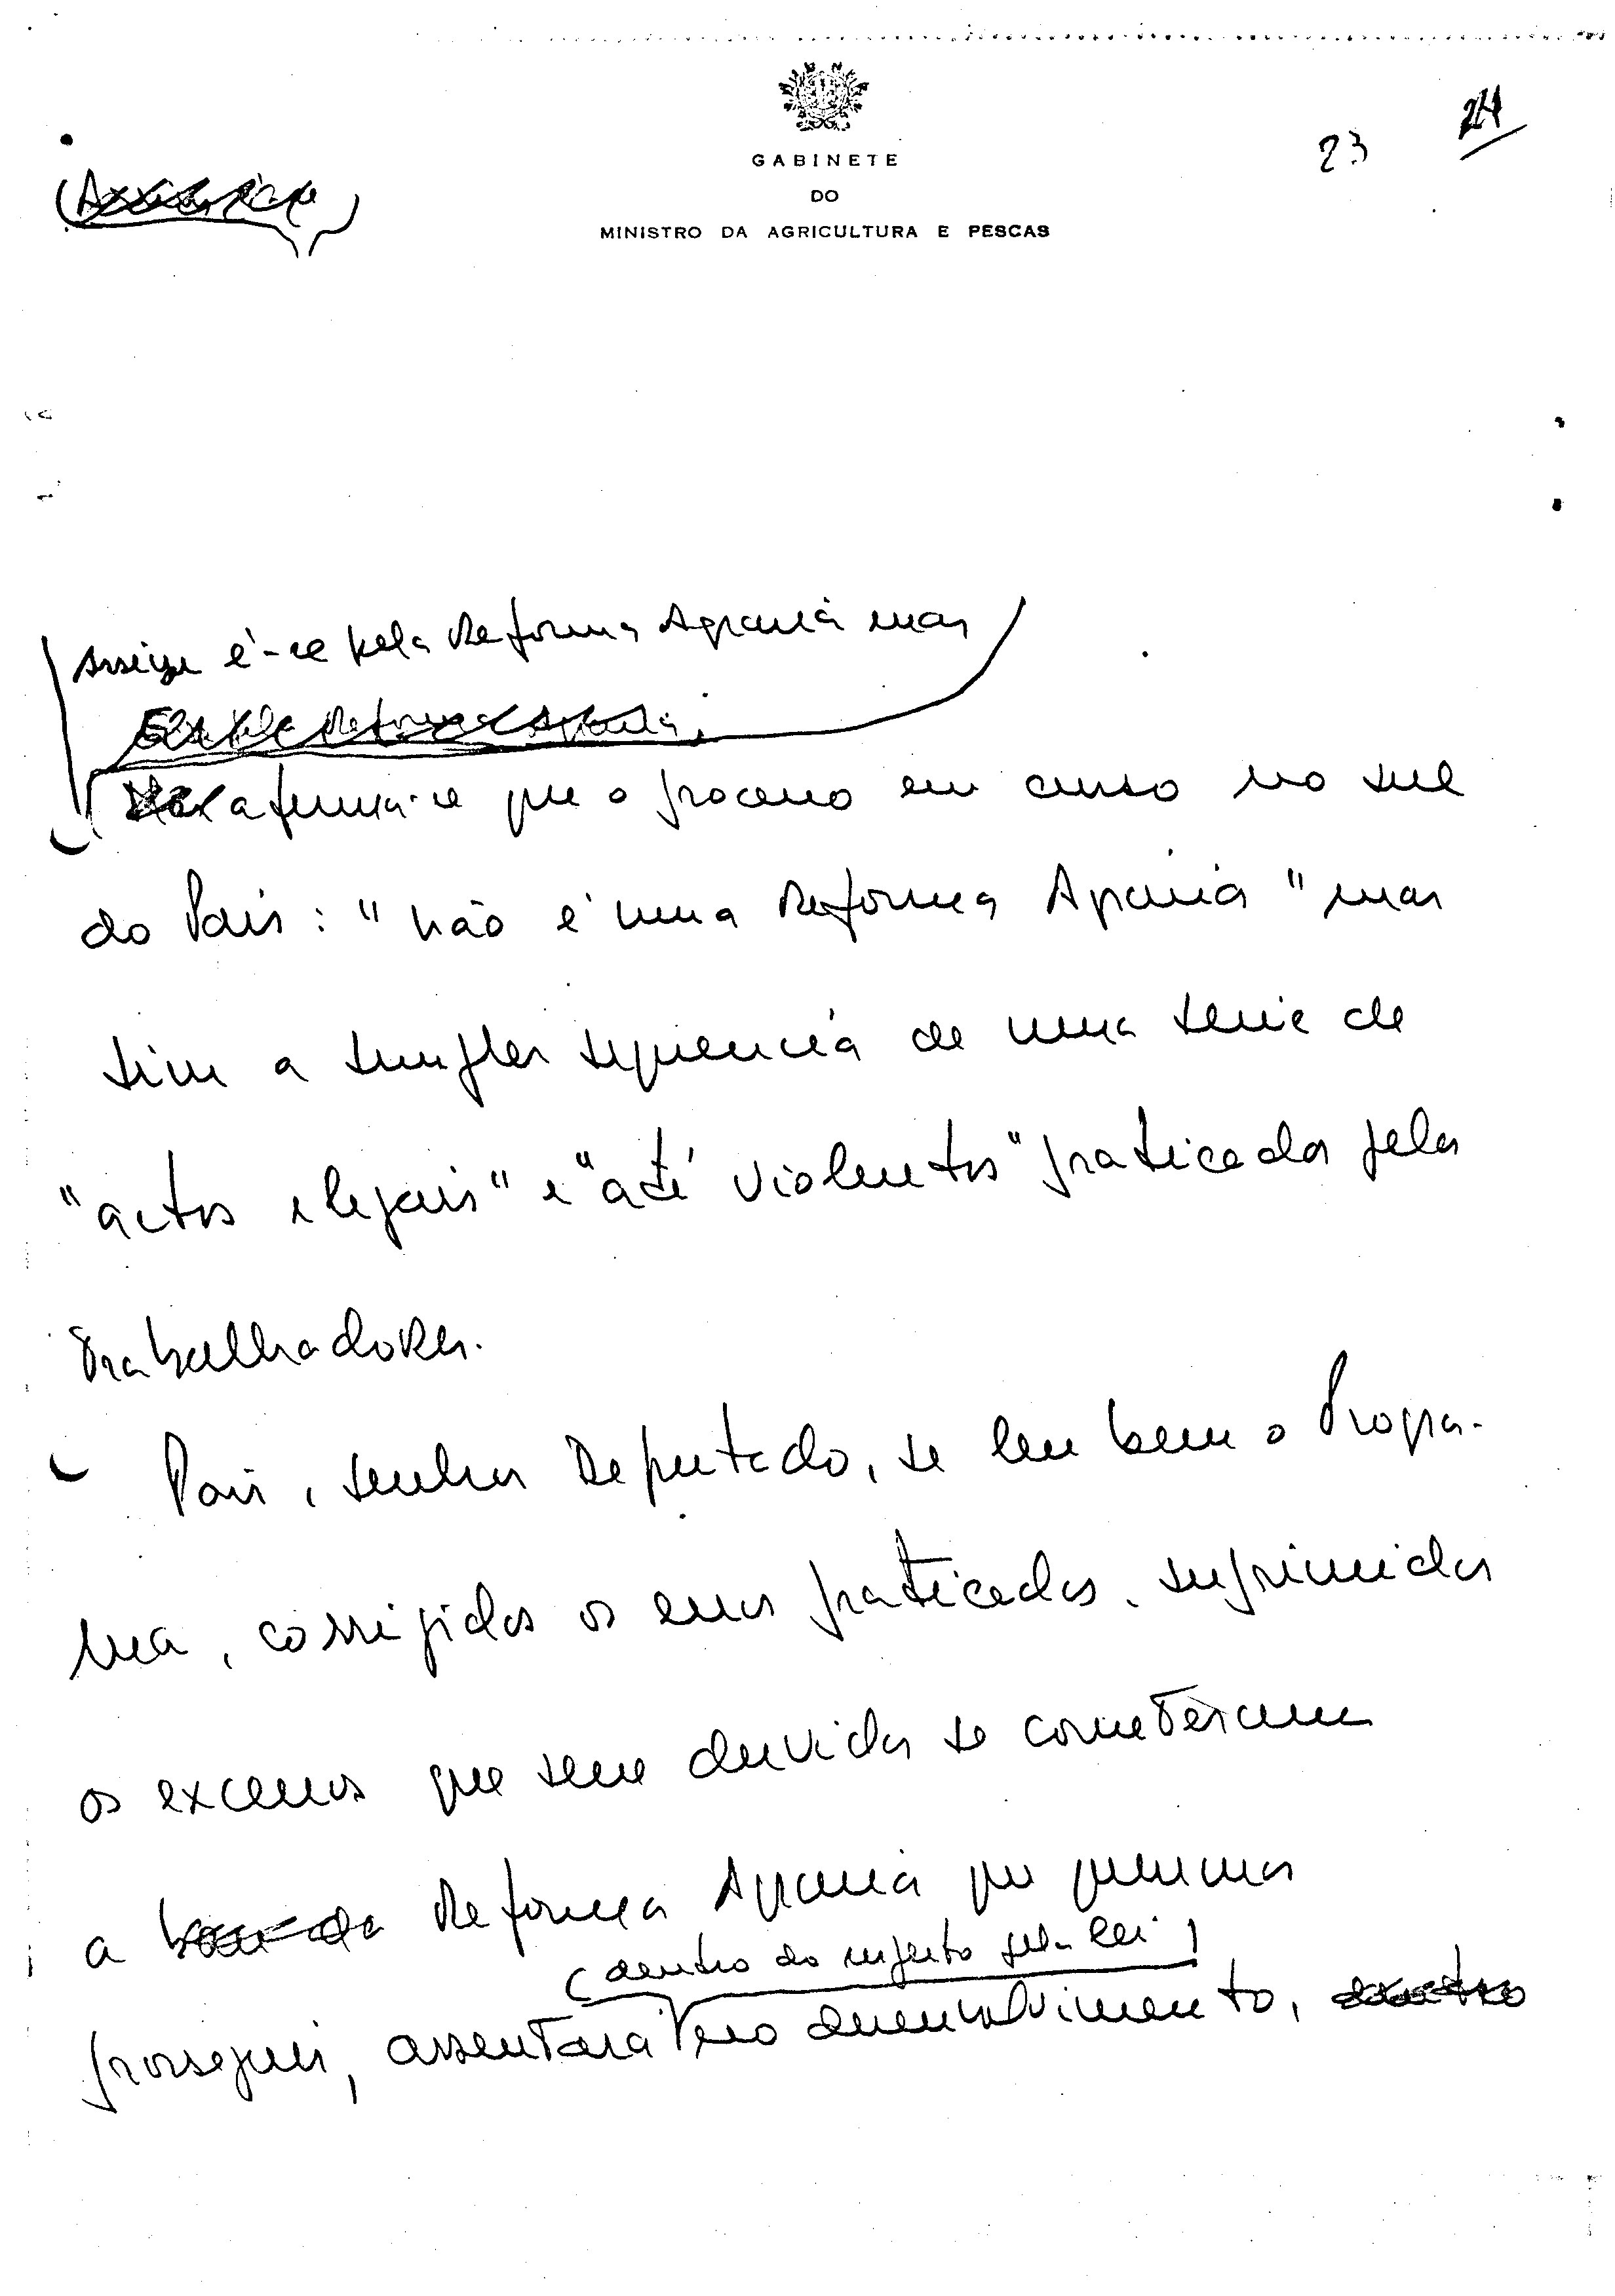 GABINETE
DO
MINISTRO DA AGRICULTURA E PESCAS
23 24
é-se pela Reforma Agrária mas
afirma-se que o processo em curso no sul
do País: "não é uma Reforma Agrária" mas
sim a simples sequência de uma série de
"actos ilegais" e "até violentos" praticados pelos
trabalhadores.
Pois, senhor Deputado, se leu bem o Progra-
ma, corrigidos os erros praticados, suprimidos
os excessos que sem duvida se cometeram
a Reforma Agrária que queremos
(dentro do respeito pela lei)
prosseguir, assentará no desenvolvimento, dentro